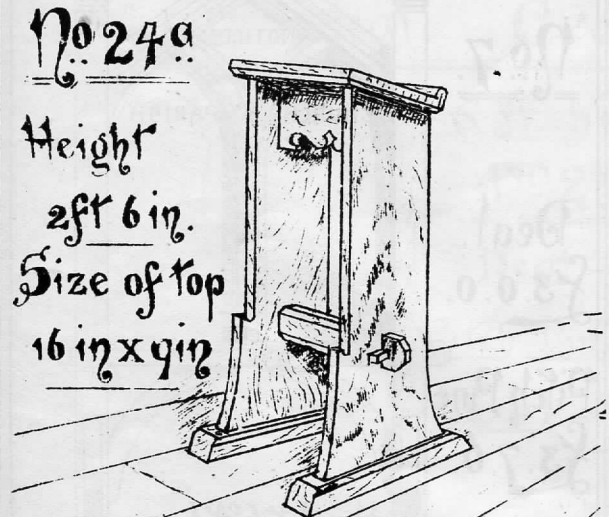 No. 24a.
Height
2ft 6 in.
Size of top
16 in x 9in